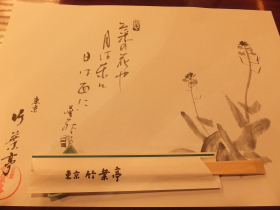 菜の花や
月は東に
日は西に
東京
竹葉亭
東京 竹葉亭